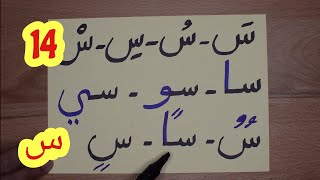 14
سَ - سُ - سِ - سْ
سا - سو - سي
سٌ - سًا - سٍ
س